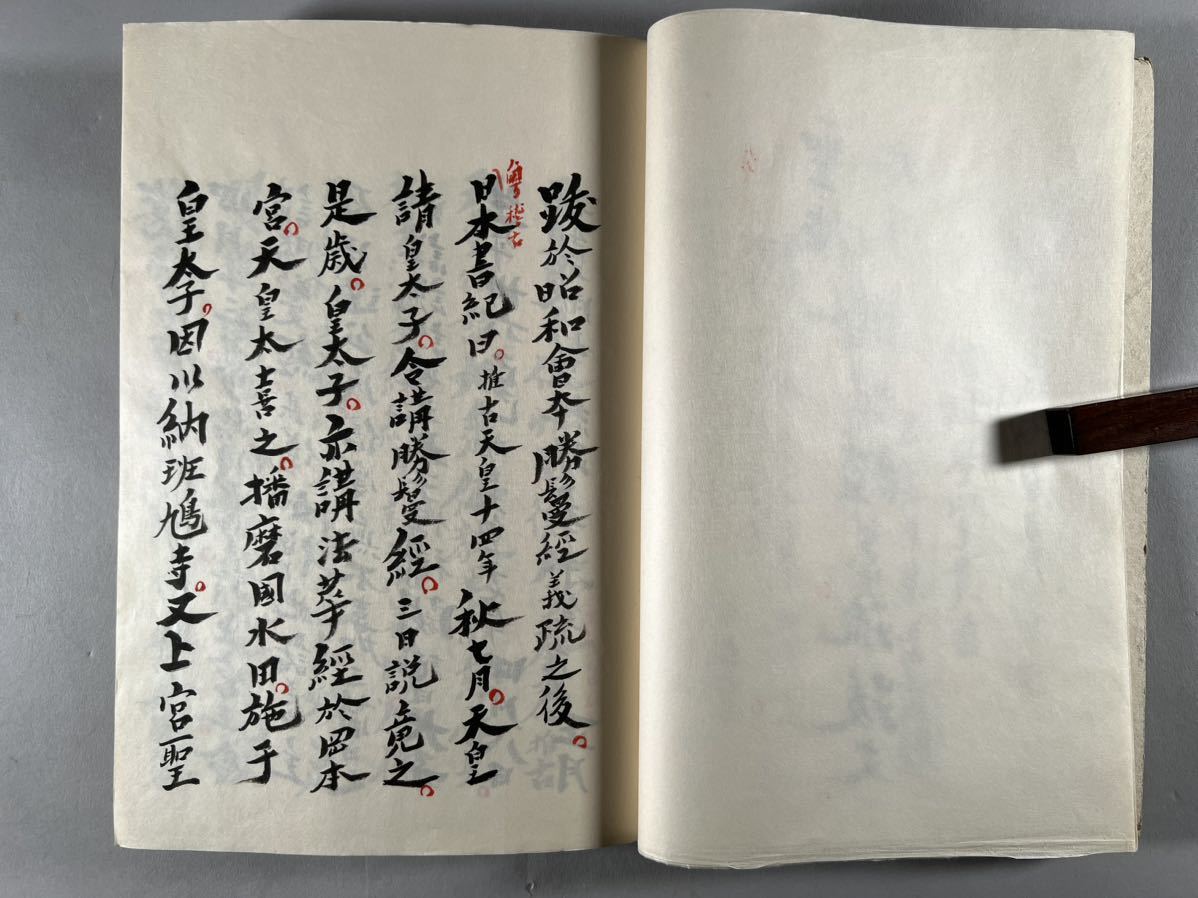 跋於昭和會本勝鬘經義疏之後。
粤稽古
日本書紀曰。推古天皇十四年秋七月。天皇
請皇太子。令講勝鬘經。三日說竟之。
是歲。皇太子。亦講法華經於岡本
宮。天皇太喜之。播磨國水田。施于
皇太子。因以納班鳩寺。又上宮聖